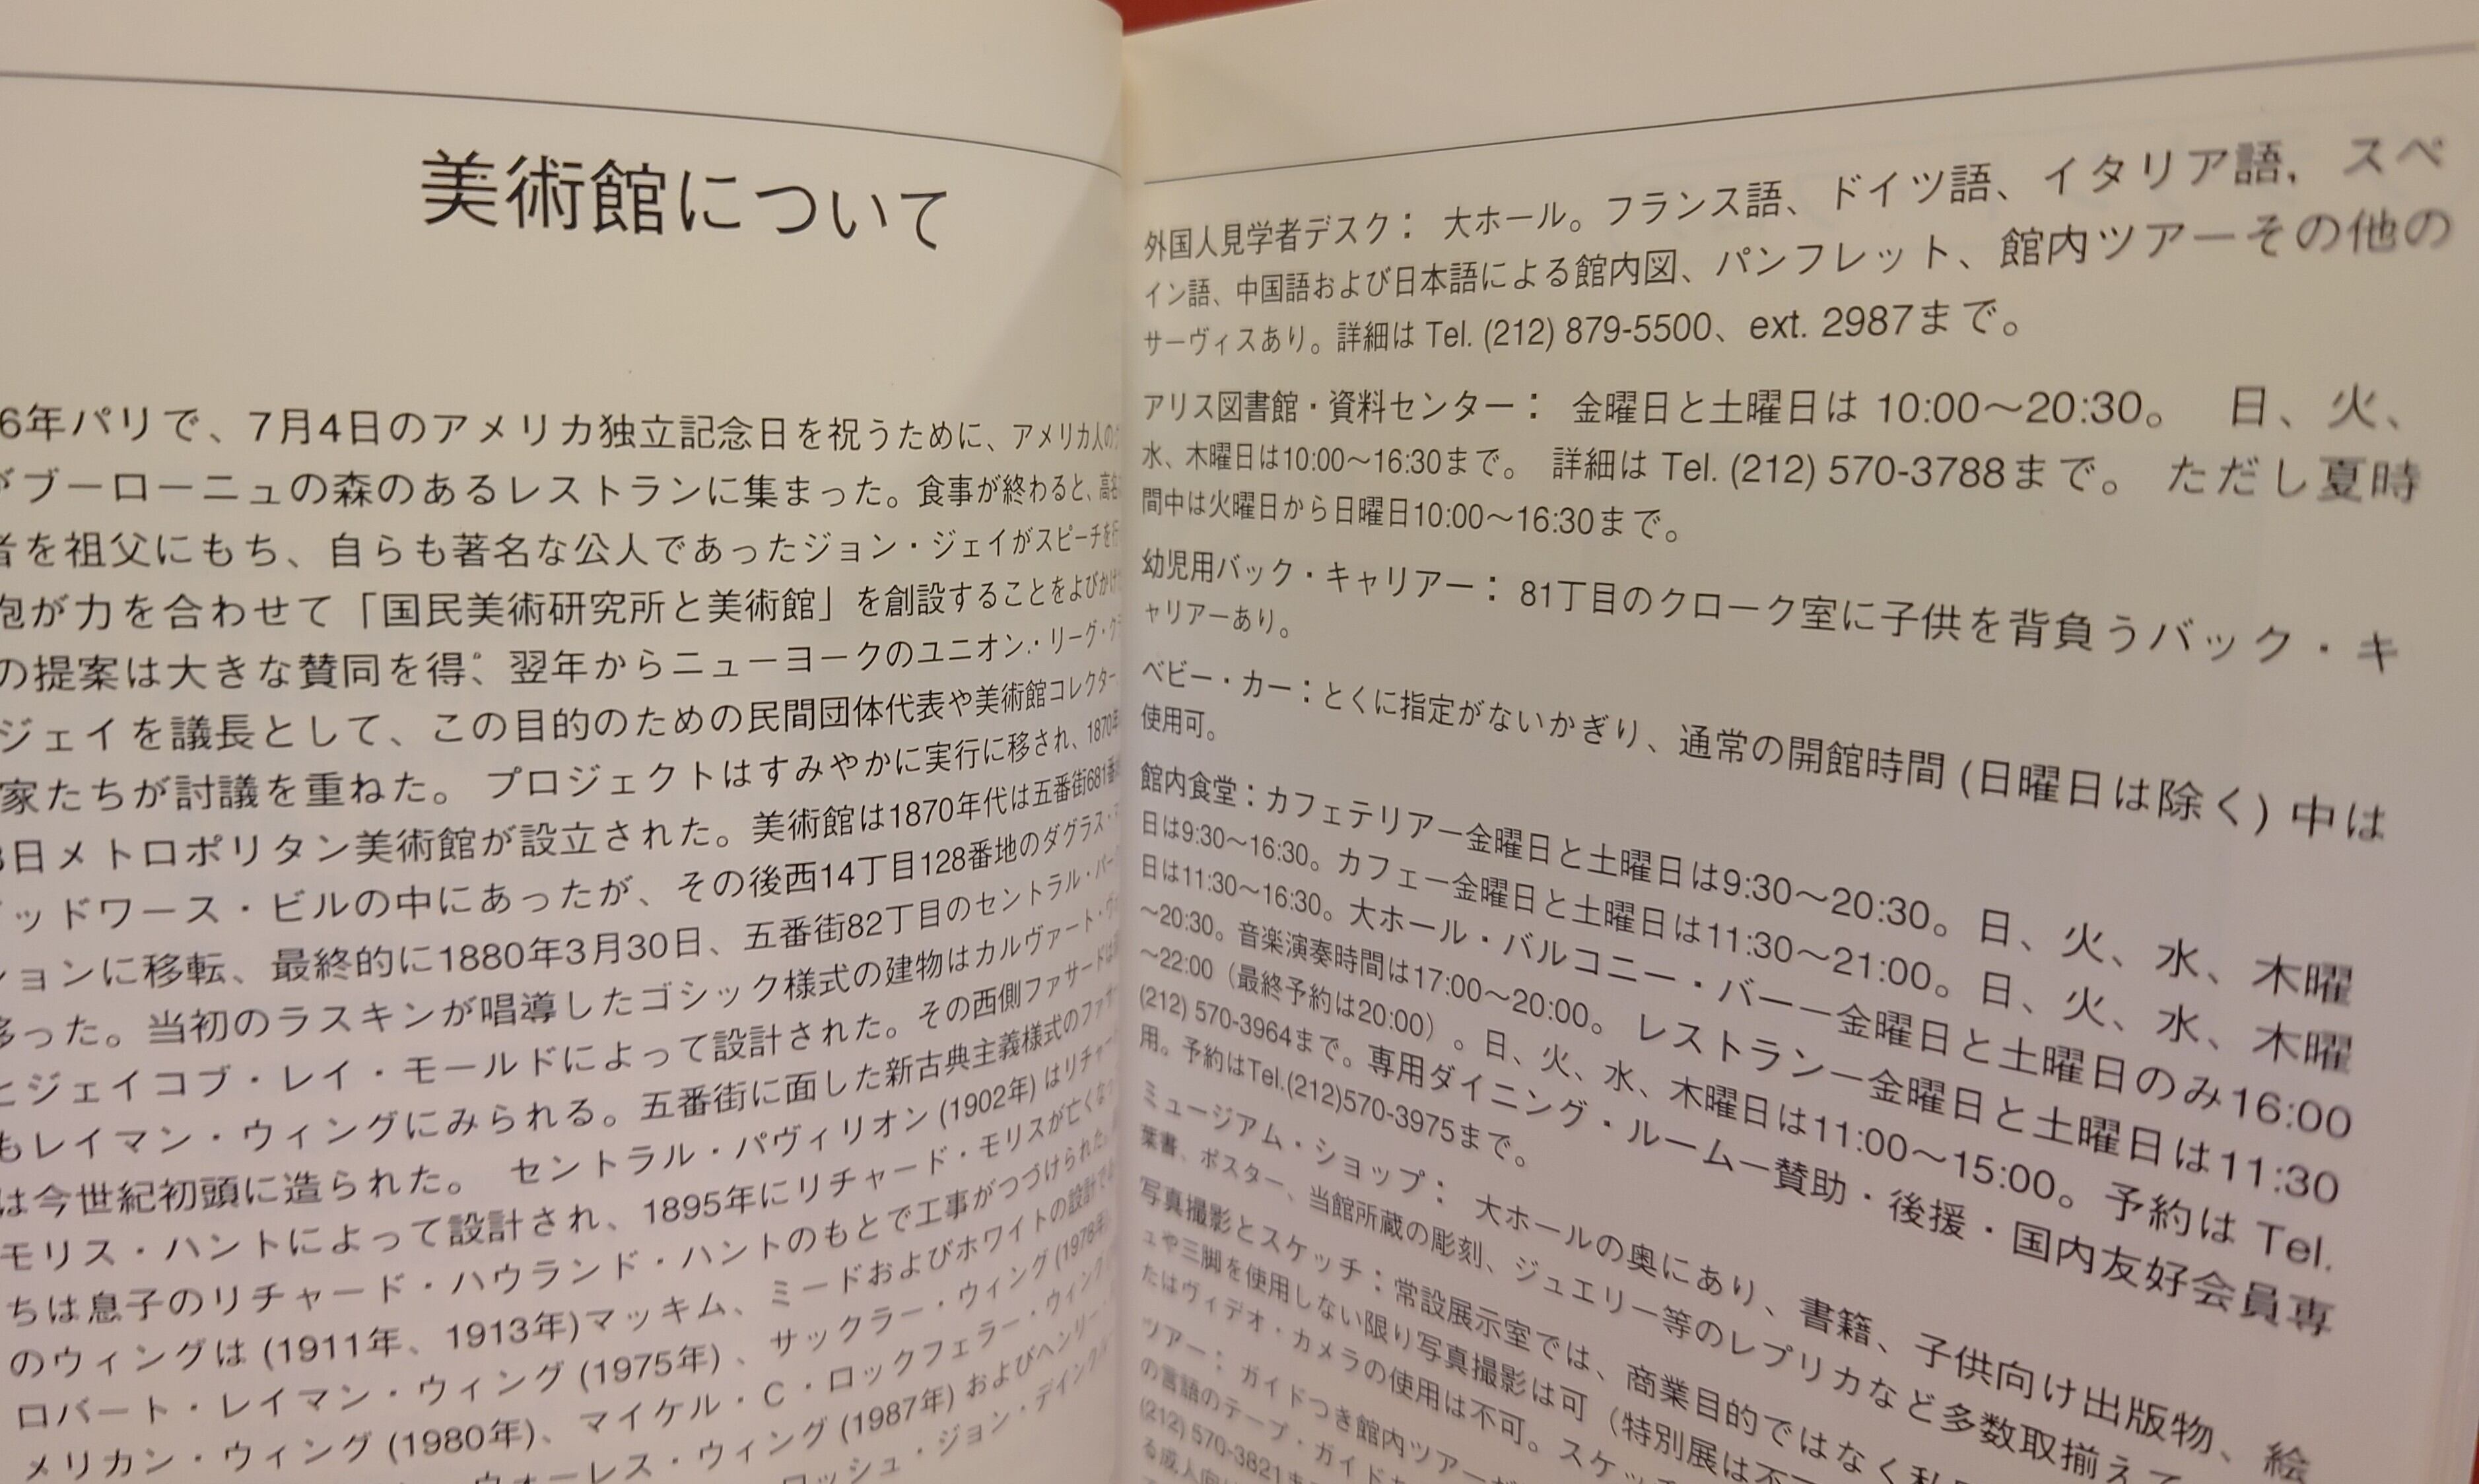 美術館について
6年パリで、7月4日のアメリカ独立記念日を祝うために、アメリカ人の
ブーローニュの森のあるレストランに集まった。食事が終わると、高名
者を祖父にもち、自らも著名な公人であったジョン・ジェイがスピーチを行
胞が力を合わせて「国民美術研究所と美術館」を創設することをよびかけ
の提案は大きな賛同を得、翌年からニューヨークのユニオン・リーグ・ク
ジェイを議長として、この目的のための民間団体代表や美術館コレクター
家たちが討議を重ねた。 プロジェクトはすみやかに実行に移され、1870年
日メトロポリタン美術館が設立された。美術館は1870年代は五番街681番
ッドワース・ビルの中にあったが、その後西14丁目128番地のダグラス・
ションに移転、最終的に1880年3月30日、五番街82丁目のセントラル・パーク
移った。当初のラスキンが唱導したゴシック様式の建物はカルヴァート・ヴ
とジェイコブ・レイ・モールドによって設計された。その西側ファサードは
もレイマン・ウィングにみられる。五番街に面した新古典主義様式のファサー
は今世紀初頭に造られた。 セントラル・パヴィリオン (1902年) はリチャー
モリス・ハントによって設計され、1895年にリチャード・モリスが亡くなっ
ちは息子のリチャード・ハウランド・ハントのもとで工事がつづけられた。
のウィングは (1911年、1913年)マッキム、ミードおよびホワイトの設計で
ロバート・レイマン・ウィング (1975年) 、サックラー・ウィング (1978年)
メリカン・ウィング (1980年)、マイケル・C・ロックフェラー・ウィング
ウォーレス・ウィング (1987年) およびヘンリー
ロッシュ・ジョン・ディンク
外国人見学者デスク： 大ホール。フランス語、ドイツ語、イタリア語、スペ
イン語、中国語および日本語による館内図、パンフレット、館内ツアーその他の
サーヴィスあり。詳細は Tel. (212) 879-5500、ext. 2987まで。
アリス図書館・資料センター： 金曜日と土曜日は 10:00〜20:30。 日、火、
水、木曜日は10:00〜16:30まで。 詳細は Tel. (212) 570-3788まで。 ただし夏時
間中は火曜日から日曜日10:00〜16:30まで。
幼児用バック・キャリアー： 81丁目のクローク室に子供を背負うバック・キ
ャリアーあり。
ベビー・カー：とくに指定がないかぎり、通常の開館時間 (日曜日は除く) 中は
使用可。
館内食堂：カフェテリアー金曜日と土曜日は9:30〜20:30。日、火、水、木曜
日は9:30〜16:30。カフェー金曜日と土曜日は11:30〜21:00。日、火、水、木曜
日は11:30〜16:30。大ホール・バルコニー・バーー金曜日と土曜日のみ16:00
〜20:30。音楽演奏時間は17:00〜20:00。 レストランー金曜日と土曜日は11:30
〜22:00（最終予約は20:00）。日、火、水、木曜日は11:00〜15:00。予約は Tel.
(212) 570-3964まで。専用ダイニング・ルームー賛助・後援・国内友好会員専
用。予約はTel.(212)570-3975まで。
ミュージアム・ショップ： 大ホールの奥にあり、書籍、子供向け出版物、絵
葉書、ポスター、当館所蔵の彫刻、ジュエリー等のレプリカなど多数取揃えて
写真撮影とスケッチ：常設展示室では、商業目的ではなく私
ュや三脚を使用しない限り写真撮影は可（特別展は不
たはヴィデオ・カメラの使用は不可。スケッチ
ツアー： ガイドつき館内ツアー
の言語のテープ・ガイド
(212) 570-3821ま
る成人向